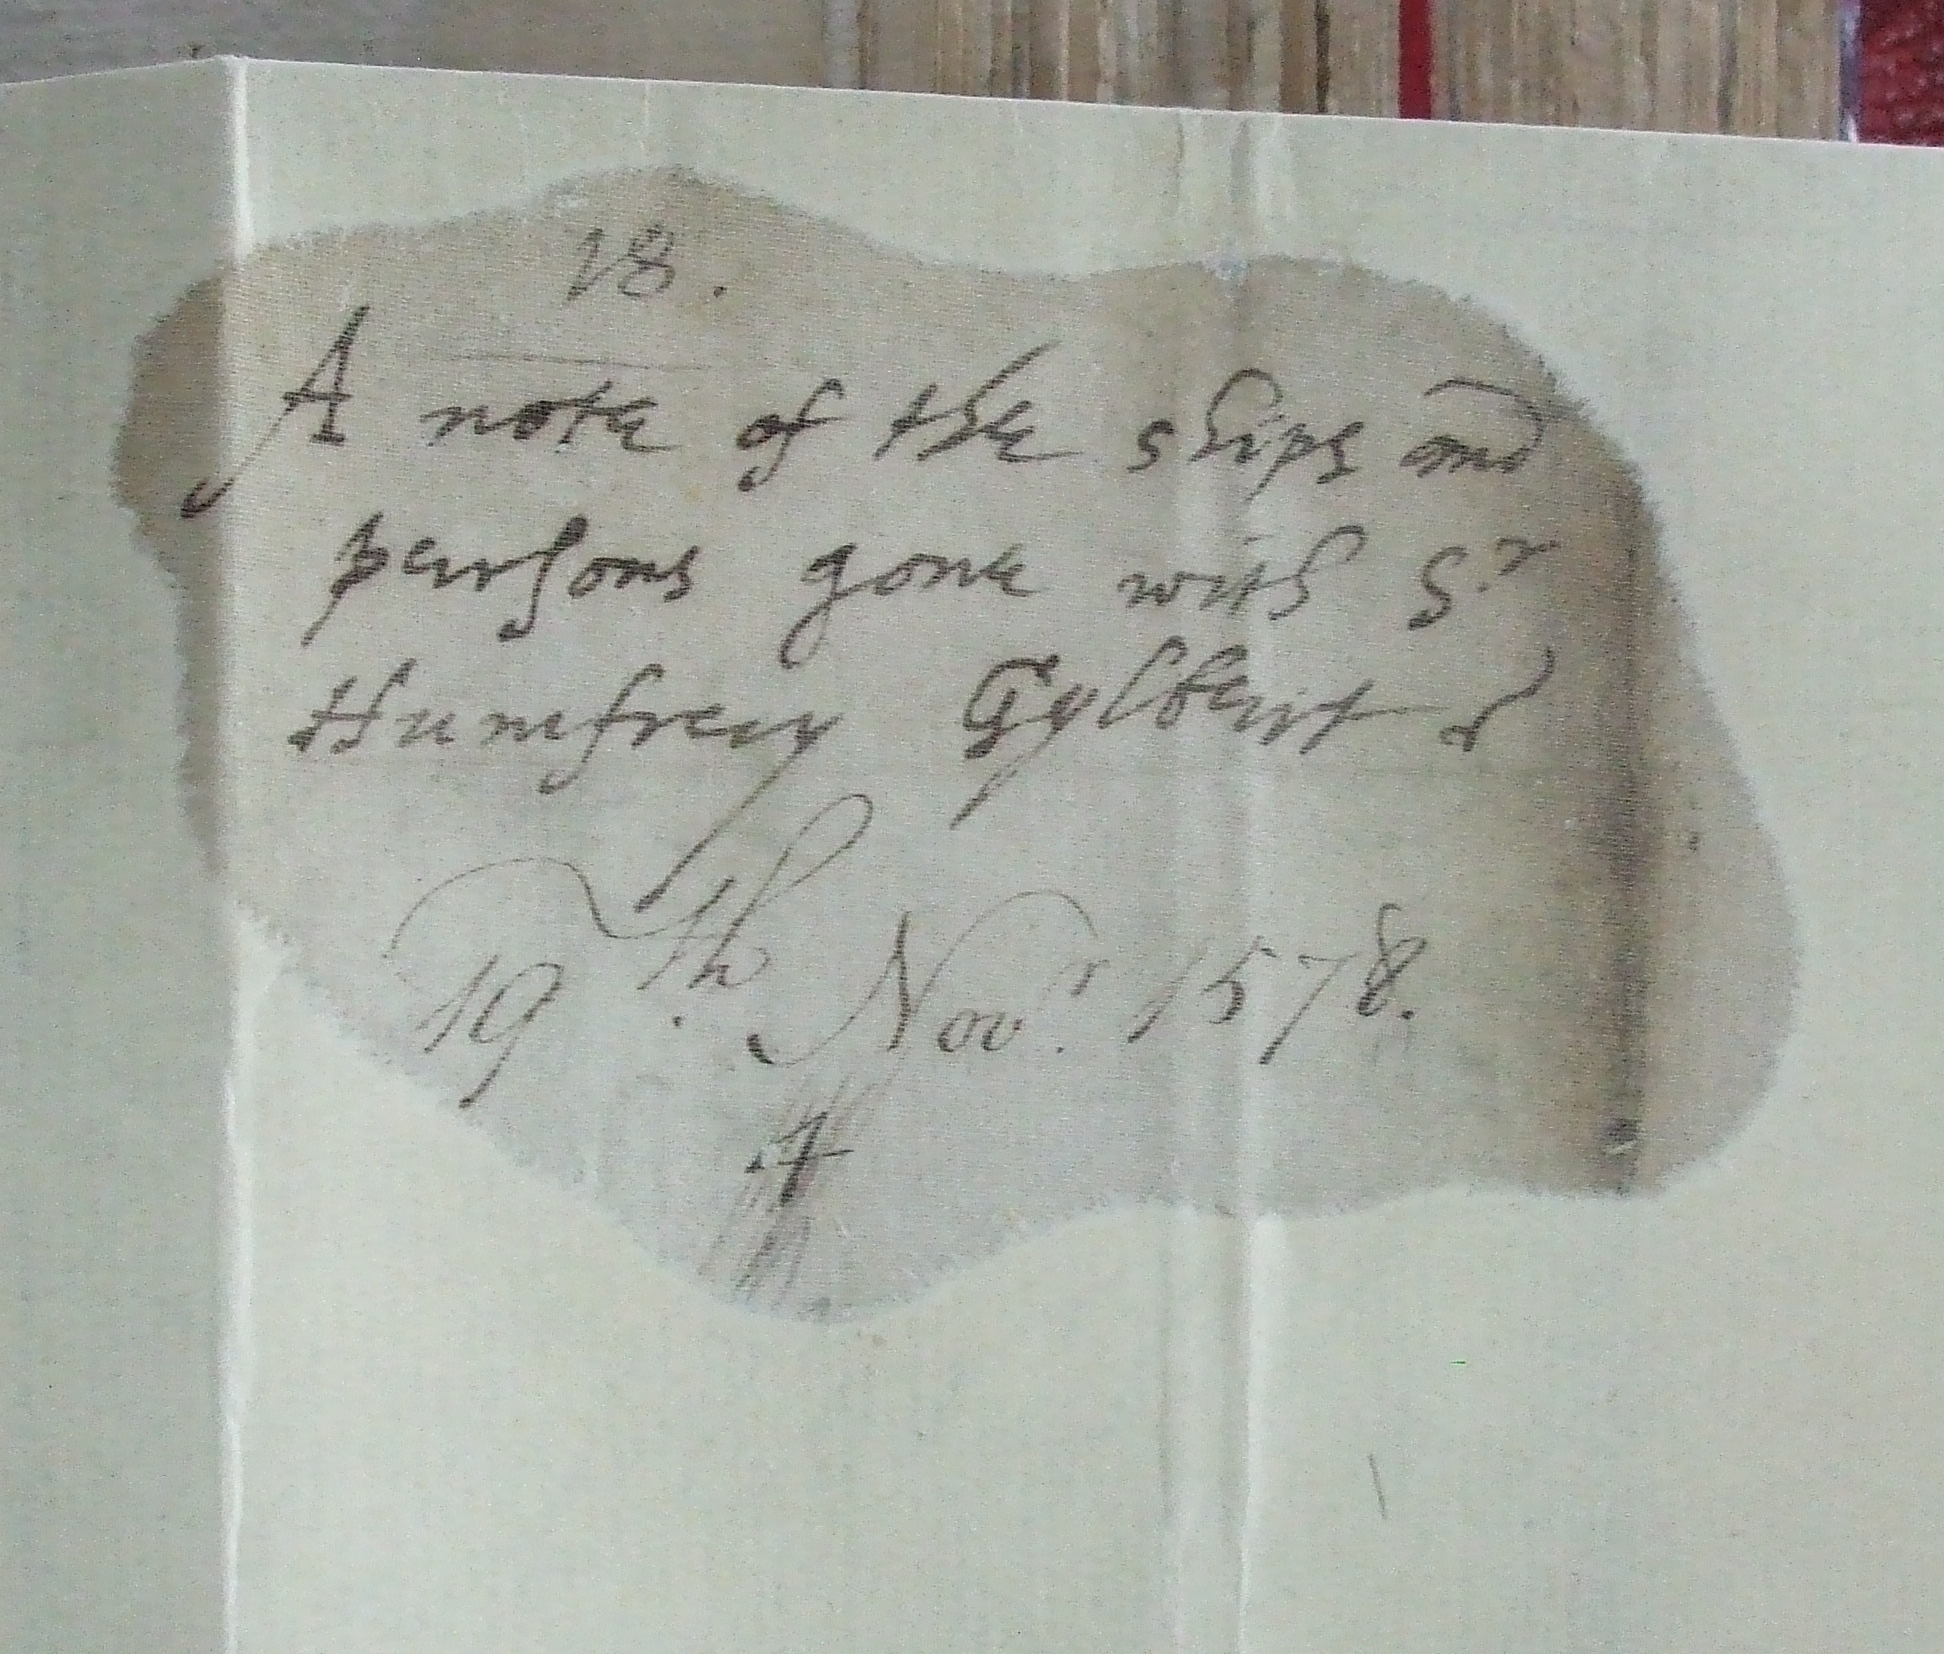 18.
A note of the ships and
persons gone with Sr
Humfrey Gylbert
19th. Novr. 1578.